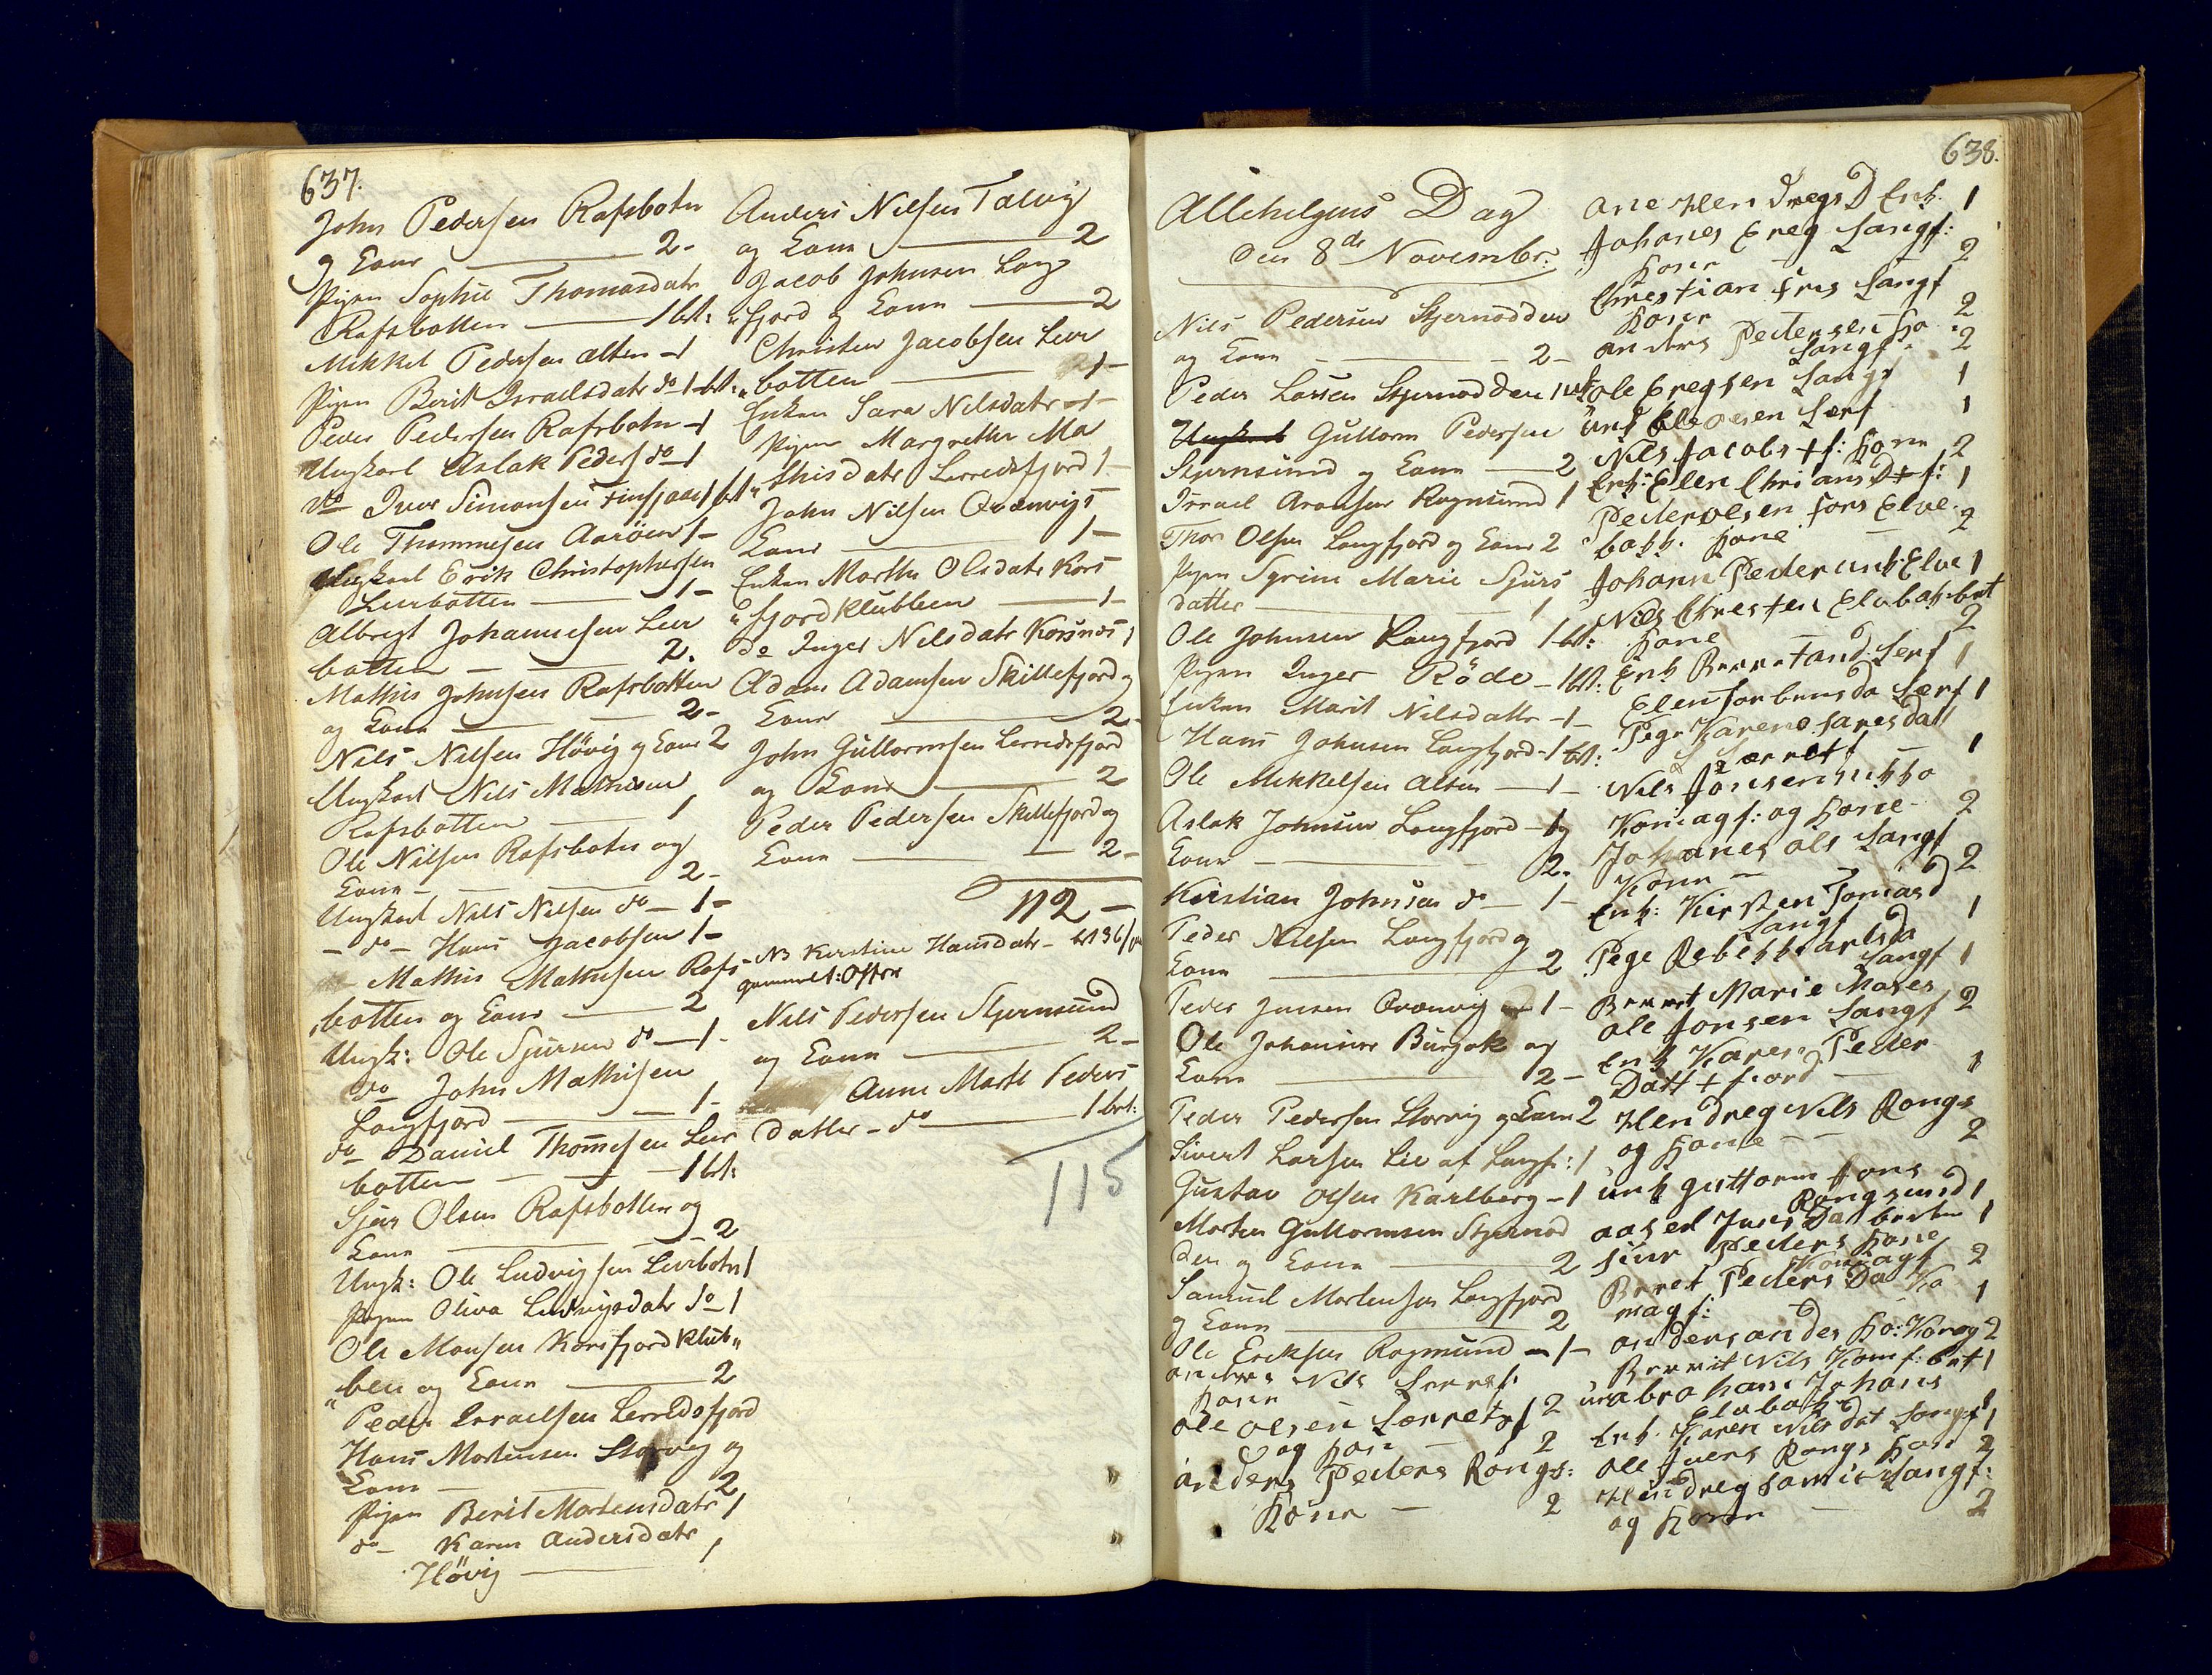 637.
John Pedersen Rafsbotn
og Kone 2-
Pigen Sophie Thomasdatr
Rafsbotten 1 bt:
Mikkel Pedersen Alten -1
Pigen Berit Israelsdatr do 1 bt:
Peder Pedersen Rafsbotn -1
Ungkarl Aslak Peders do -1
do Iver Simonsen 1 bt
Ole Thommesen Aaröen 1-
Ungkarl Erik Christophersen
Leerbotten 1-
Albregt Johannesen Leer
botten - 2.
Mathis Johnsen Rafsbotten
og Kone 2-
Nils Nilsen Hövig og Kone 2
Ungkarl Nils Mathisen
Rafsbotten 1
Ole Nilsen Rafsbotn og
Kone - 2-
Ungkarl Nils Nilsen do - 1-
- do - Hans Jacobsen 1-
Mathis Mathisen Rafs-
botten og Kone 2
Ungk: Ole Sjursen do -1-
do John Mathisen
Langfjord 1-
do Daniel Thomesen Leer
botten - 1 bt:
Sjur Olsen Rafsbotten og
Kone 2
Ungk: Ole Ludvigsen Leerbotn 1
Pigen Oliva Ludvigsdatr do 1
Ole Monsen Korsfjord Klub„
„ben og Kone 2
Peder Israelsen Lerredsfjord
Hans Mortensen Storvig og
Kone - 2
Pigen Berit Mortensdatr 1
do - Karen Andersdatr
Hövig 1
Anders Nilsen Talvig
og Kone 2
Jacob Johnsen Lang
„fjord og Kone 2
Christen Jacobsen Leer
„botten 1-
Enken Sara Nilsdatr -1-
Pigen Margrethe Ma
„thisdatr Lerredsfjord 1-
John Nilsen Qvænvigs
Kone 1-
Enken Marthe Olsdatr Kors
„fjordklubben 1-
do Inger Nilsdatr Korsnæs 1
Adam Adamsen Skillefjord og
Kone 2-
John Guttormsen Lerredsfjord
og Kone 2
Peder Pedersen Skillefjord og
Kone 2-
112 -
NB Kirstine Hansdatr - bt 36
gammel: Offer
Nils Pedersen Stjernsund
og Kone 2-
Anne Marte Peders
datter - do 1 bt:
115
638.
Allehelgens Dag
den 8de Novembr:
Nils Pedersen Stjernodden
og Kone - 2-
Peder Larsen Stjernodden 1
Ungkarl Guttorm Pedersen
Stjernsund og Kone 2
Israel Aronsen Rognsund 1
Thor Olsen Langfjord og Kone 2
Pigen Sirine Marie Sjurs
datter 1
Ole Johnsen Langfjord 1 bt:
Pigen Inger Röde - 1 bt:
Enken Marit Nilsdattr -1-
Hans Johnsen Langfjord -1 bt:
Ole Mikkelsen Alten -1-
Aslak Johnsen Langfjord - og
Kone - 2.
Kirstian Johnsen do - 1-
Peder Nilsen Langfjord og
Kone 2
Peder Jensen Qvænvig 1-
Ole Johannes Burjok og
Kone 2-
Peder Pedersen Storvig og Kone 2
Sivert Larsen Lie af Langf: 1
Gustav Olsen Karlberg -1
Morten Guttormsen Stjernod
den og Kone 2
Samuel Mortensen Langfjord
og Kone 2
Ole Eriksen Rognsund - 1-
anders Nils Lerref:
Kone 2
ole olsen Lærretsf
og Kone 2
anders Peders Rongs:
Kone - 2
ane Hendregs D Enk. 1
Johanes Ereg Langf:
Kone - 2
Chrestian Langf
Kone 2
anders Pedersen Ko
Langf. 2
ole Eregsen Langf 1
unk Ole olsen Lerf 1
Nils Jacobs +f: Kone 2
Enk: Elen Chrians D +f: 1
Peder olsen fors Elve
bakk. Kone 2
Johann Peder unk: Elve 1
Nils Chresten Elvbak bnt
Kone 2
Enk Berret and: Lerf 1
Elen Torbens da Lærf 1
Pege Karen Lares dat
Lærretf 1
Nils Jonsen
Komagf: og Kone 2
Johanes ols Langf
Kone - 2
Enk: Kirsten Tomas D
Langf 1
Pege Rebekk arls Da
Langf 1
Berret Marie Moses
ole Jonsen Langf 2
Enk Karen Peder
Datt + fiord 1
Hendreg Nils Rongs
og Kone - 2
unk guttorm Jons
Rongsund 1
Peders Kone
Komagf 2
Beret Peders Da Ko
magf: 1
anders andes Ko: Komag 2
Berrit Nils Komf: bnt 1
un abraham Johans
Elvbak 1
Enk. Karen Nils dat Langf 1
ole Ivers Rongs Kone 2
Hendreg Langf:
og Kone - 2